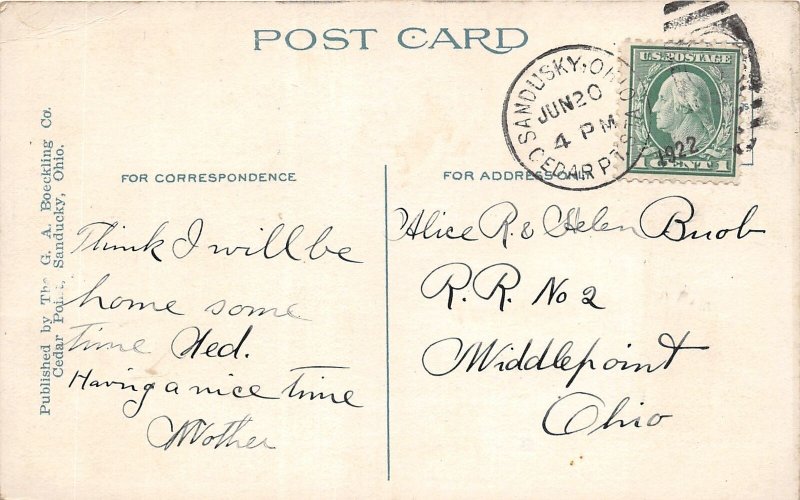 POST CARD
SANDUSKY, OHIO
JUN 20
4 PM
1922
CEDAR PT. STA.
U.S. POSTAGE
1 CENT 1
FOR CORRESPONDENCE
FOR ADDRESS ONLY
Published by The G. A. Boeckling Co.
Cedar Point, Sanducky, Ohio.
Think I will be
home some
time Wed.
Having a nice time
Mother
Alice R. & Helen Buob
R. R. No 2
Middlepoint
Ohio